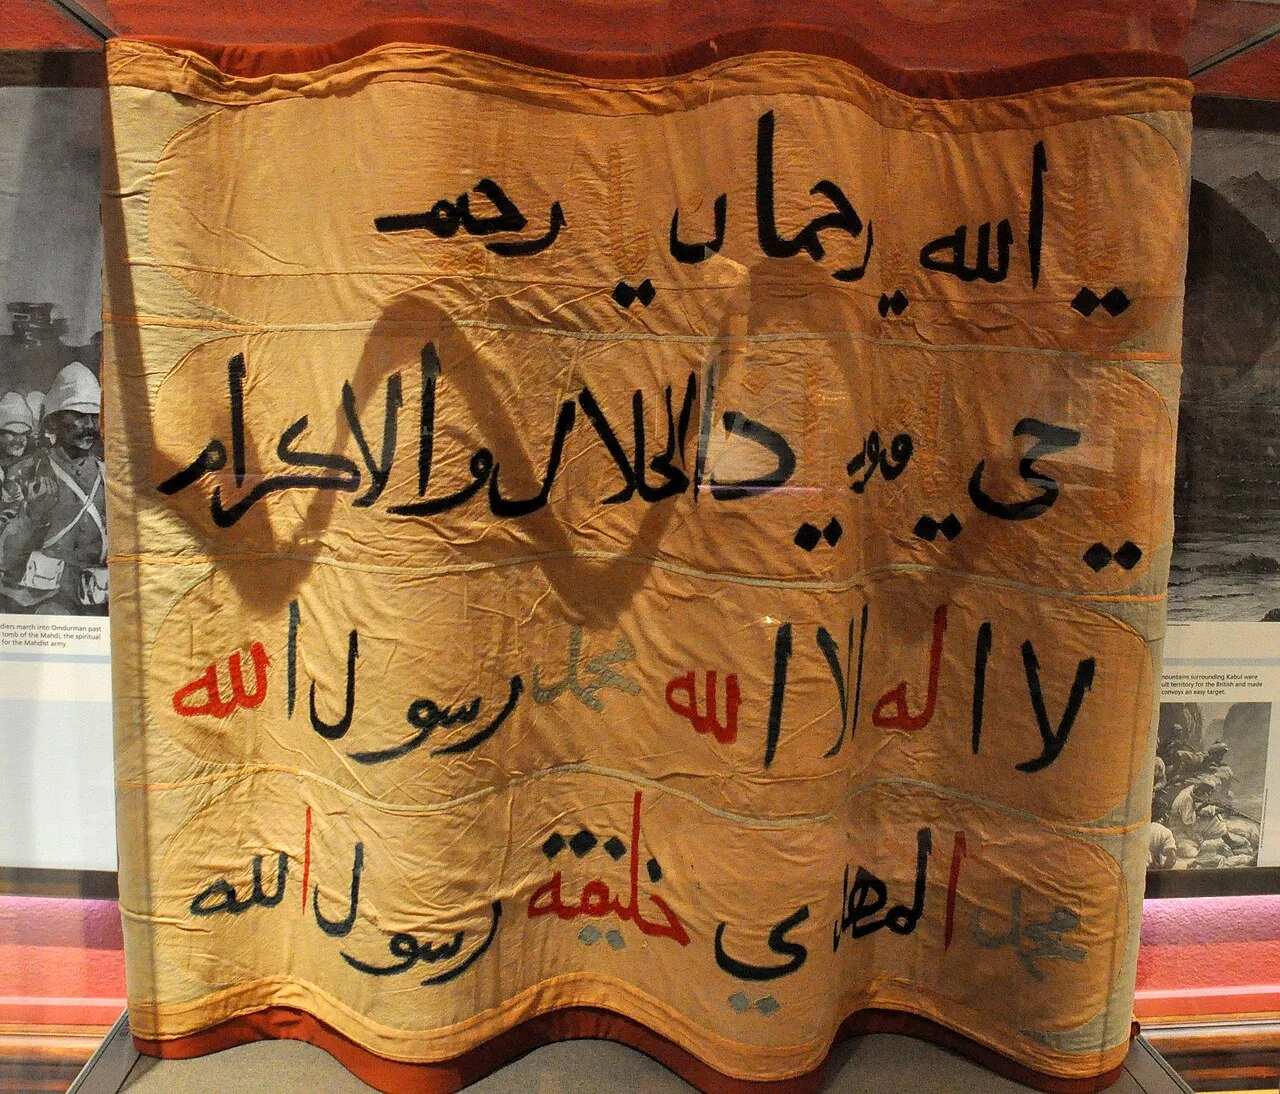 يا الله يا رحمان يا رحيم
يا حي يا قيوم يا ذا الجلال والاكرام
لا اله الا الله محمد رسول الله
محمد المهدي خليفة رسول الله
diers march into Omdurman past
tomb of the Mahdi, the spiritual
for the Mahdist army.
mountains surrounding Kabul were
ult territory for the British and made
convoys an easy target.